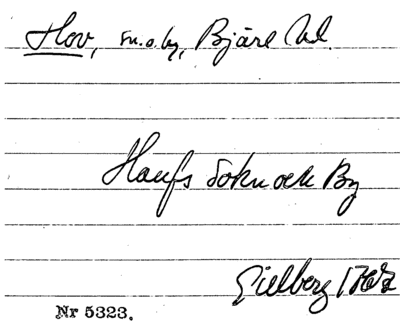 Hov, sn. o. by, Bjäre hd.
Haufs Sokn och By
Gillberg 1767
Nr 5323.